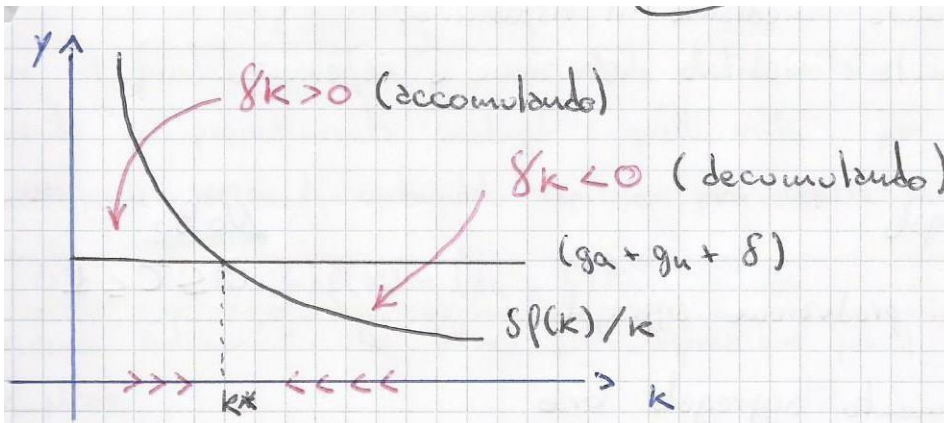 y
γk>0 (accomulando)
γk<0 (decumulando)
(ga + gn + δ)
Sf(k)/k
k*
k